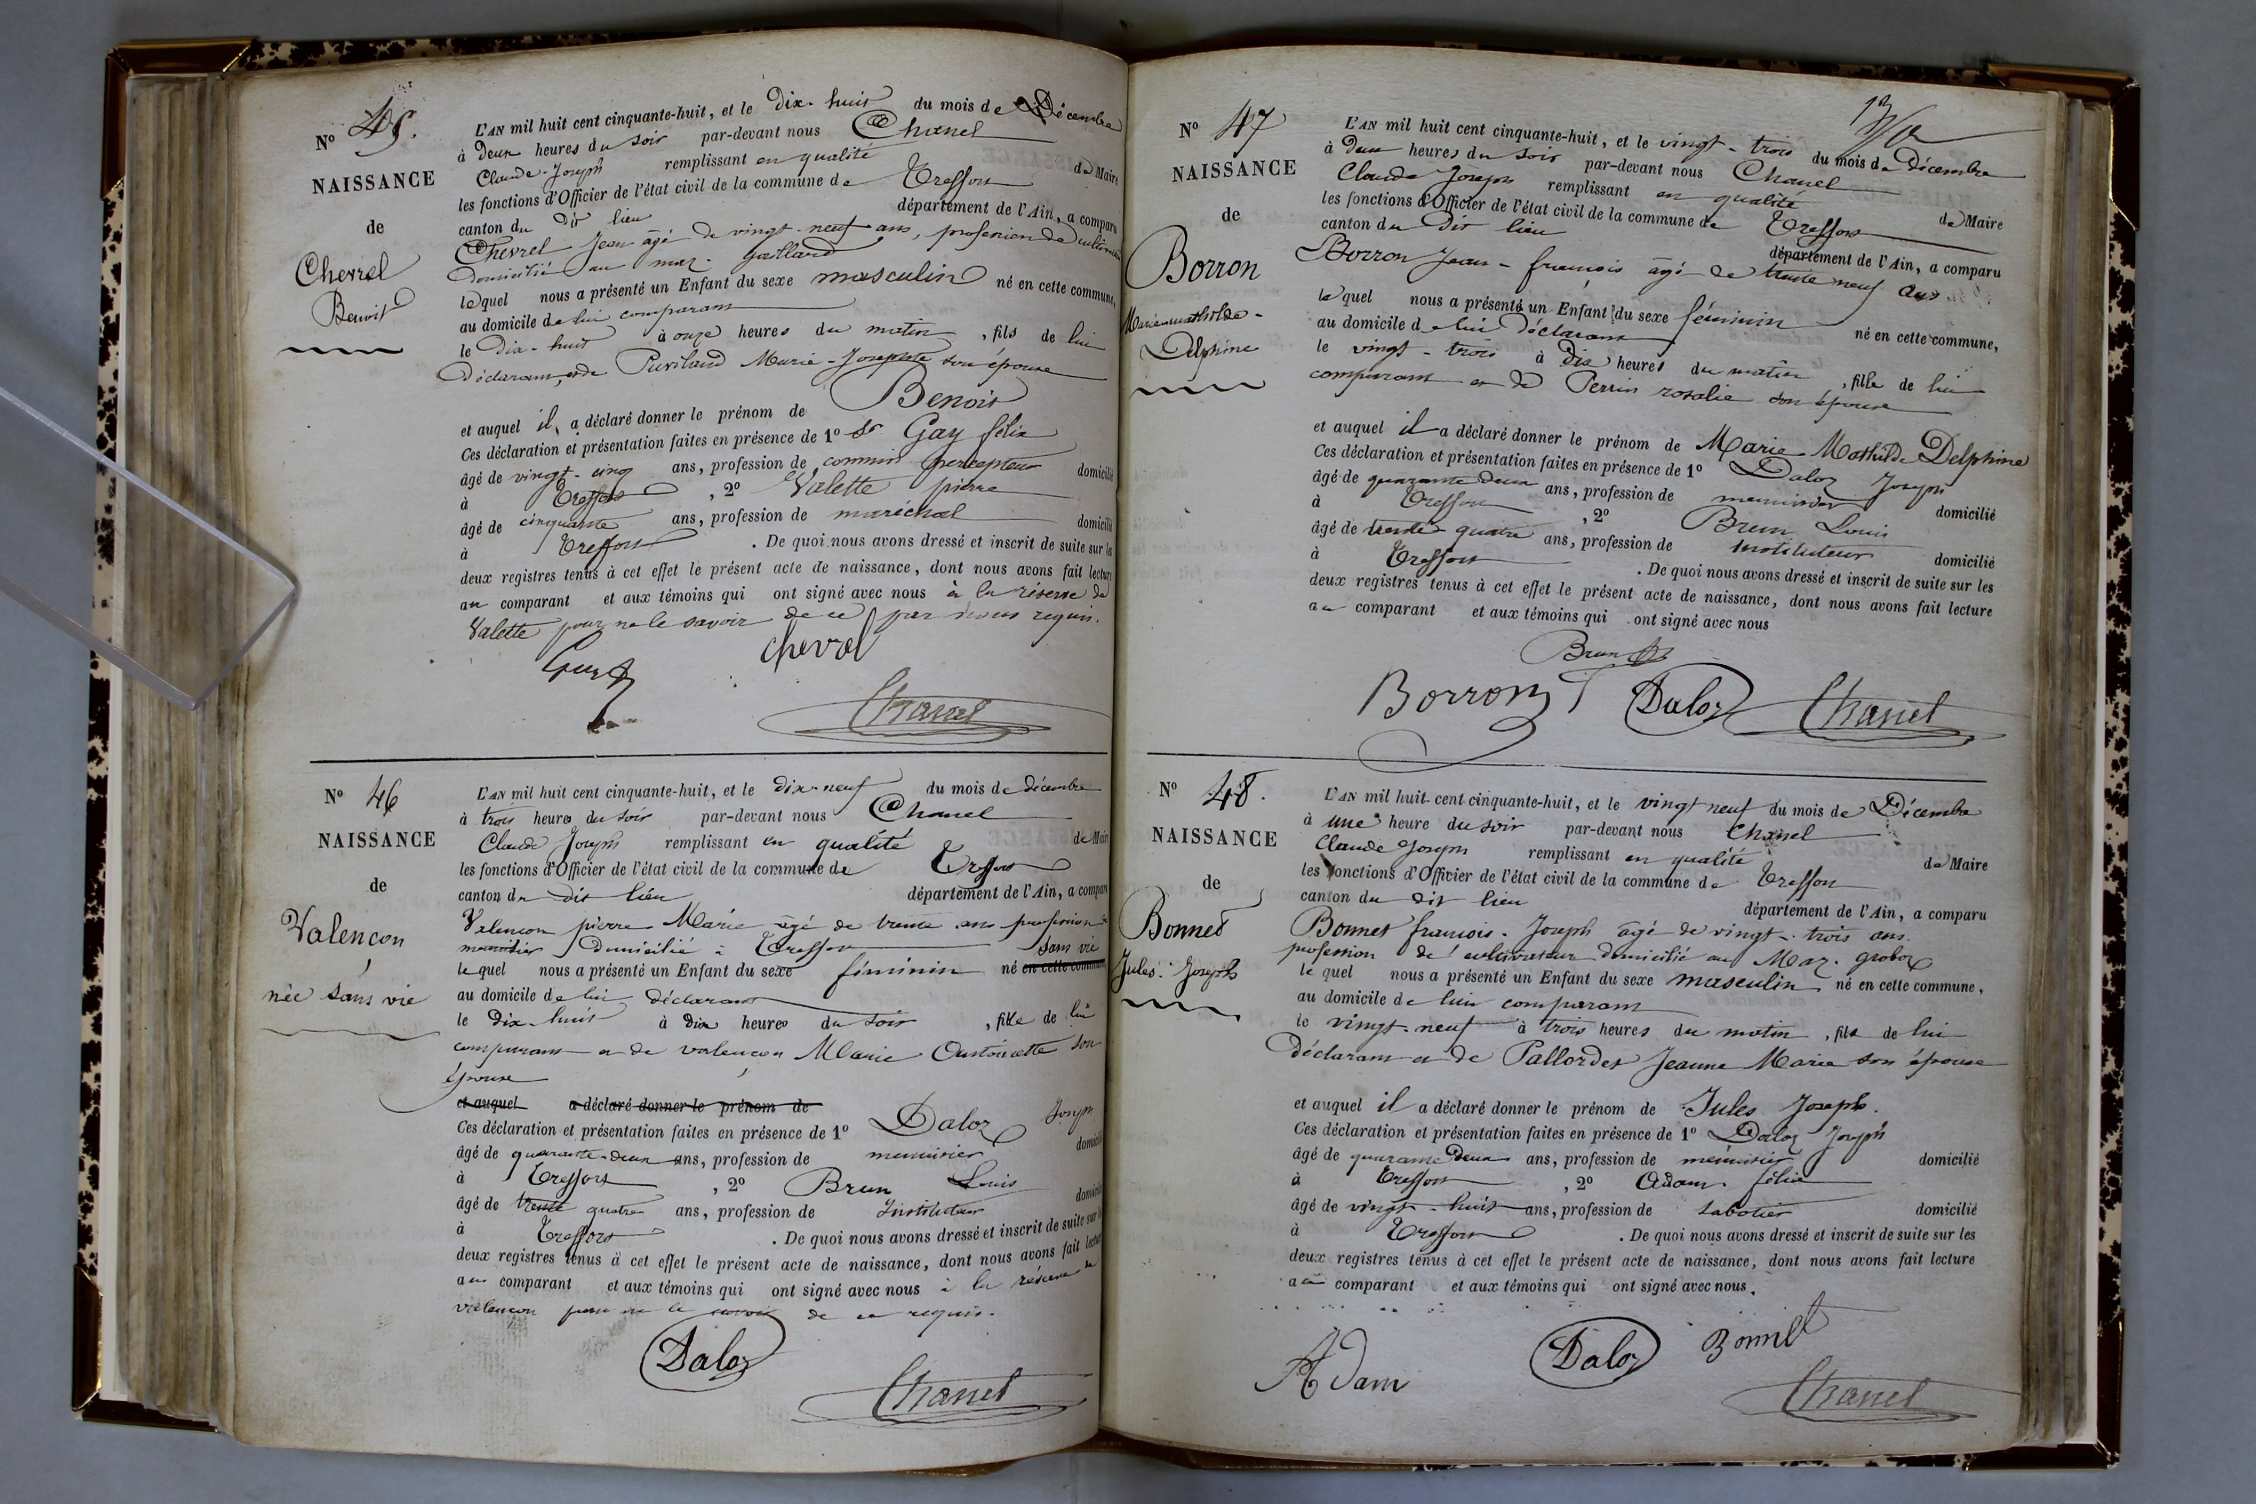 Nº 45.
NAISSANCE
de
Chevrel
Benoit
L'AN mil huit cent cinquante-huit, et le Dix-huit du mois de Décembre
à Deux heures du soir par-devant nous Chanel
Claude-Joseph remplissant en qualité de Maire
les fonctions d'Officier de l'état civil de la commune de Treffort
canton du dit lieu département de l'Ain, a comparu
Chevrel Jean âgé de vingt-neuf ans, profession de cultivateur
domicilié au maz-gaillard
lequel nous a présenté un Enfant du sexe masculin né en cette commune,
au domicile de lui comparant
le Dix-huit à onze heures du matin, fils de lui
Déclarant, et de Marie-Josephte son épouse
et auquel il a déclaré donner le prénom de Benoit
Ces déclaration et présentation faites en présence de 1º Sr Gay félix
âgé de vingt-cinq ans, profession de commis percepteur domicilié
à Treffort, 2º Valette pierre
âgé de cinquante ans, profession de maréchal domicilié
à Treffort. De quoi nous avons dressé et inscrit de suite sur les
deux registres tenus à cet effet le présent acte de naissance, dont nous avons fait lecture
au comparant et aux témoins qui ont signé avec nous à la réserve de
Valette pour ne le savoir de ce par nous requis.
Gay
chevrel
Chanel
Nº 46
NAISSANCE
de
Valençon
née sans vie
L'AN mil huit cent cinquante-huit, et le dix-neuf du mois de décembre
à trois heures du soir par-devant nous Chanel
Claude Joseph remplissant en qualité de Maire
les fonctions d'Officier de l'état civil de la commune de Treffort
canton du dit lieu département de l'Ain, a comparu
Valençon pierre Marie âgé de trente ans profession de
menuisier domicilié à Treffort sans vie
lequel nous a présenté un Enfant du sexe féminin né en cette commune
au domicile de lui déclarant
le dix-huit à dix heures du soir, fille de lui
comparant et de valençon Marie Antoinette son
épouse
et auquel a déclaré donner le prénom de
Ces déclaration et présentation faites en présence de 1º Daloz Joseph
âgé de quarante-deux ans, profession de menuisier domicilié
à Treffort, 2º Brun Louis
âgé de trente quatre ans, profession de Instituteur domicilié
à Treffort. De quoi nous avons dressé et inscrit de suite sur les
deux registres tenus à cet effet le présent acte de naissance, dont nous avons fait lecture
au comparant et aux témoins qui ont signé avec nous à la réserve de
valençon pour ne le savoir de ce requis.
Daloz
Chanel
Nº 47
NAISSANCE
de
Borron
Marie mathilde-
Delphine
L'AN mil huit cent cinquante-huit, et le vingt-trois du mois de Décembre
à Deux heures du soir par-devant nous Chanel
Claude Joseph remplissant en qualité de Maire
les fonctions d'Officier de l'état civil de la commune de Treffort
canton du Dit lieu département de l'Ain, a comparu
Borron Jean-françois âgé de trente neuf ans
lequel nous a présenté un Enfant du sexe féminin né en cette commune,
au domicile de lui Déclarant
le vingt-trois à Dix heures du matin, fille de lui
comparant et de Perrin rosalie son épouse
et auquel il a déclaré donner le prénom de Marie Mathilde Delphine
Ces déclaration et présentation faites en présence de 1º Daloz Joseph
âgé de quarante deux ans, profession de menuisier domicilié
à Treffort, 2º Brun Louis
âgé de trente quatre ans, profession de Instituteur domicilié
à Treffort. De quoi nous avons dressé et inscrit de suite sur les
deux registres tenus à cet effet le présent acte de naissance, dont nous avons fait lecture
au comparant et aux témoins qui ont signé avec nous
Brun
Borron
Daloz
Chanel
Nº 48.
NAISSANCE
de
Bonnet
Jules-Joseph
L'AN mil huit cent cinquante-huit, et le vingt neuf du mois de Décembre
à une heure du soir par-devant nous Chanel
Claude Joseph remplissant en qualité de Maire
les fonctions d'Officier de l'état civil de la commune de Treffort
canton du dit lieu département de l'Ain, a comparu
Bonnet francois-Joseph âgé de vingt-trois ans.
profession de cultivateur domicilié au Maz-groboz
lequel nous a présenté un Enfant du sexe masculin né en cette commune,
au domicile de lui comparant
le vingt-neuf à trois heures du matin, fils de lui
déclarant et de Pallordet Jeanne Marie son épouse
et auquel il a déclaré donner le prénom de Jules Joseph.
Ces déclaration et présentation faites en présence de 1º Daloz Joseph
âgé de quarante Deux ans, profession de menuisier domicilié
à Treffort, 2º Adam félix
âgé de vingt-huit ans, profession de sabotier domicilié
à Treffort. De quoi nous avons dressé et inscrit de suite sur les
deux registres tenus à cet effet le présent acte de naissance, dont nous avons fait lecture
au comparant et aux témoins qui ont signé avec nous.
Adam
Daloz
Bonnet
Chanel